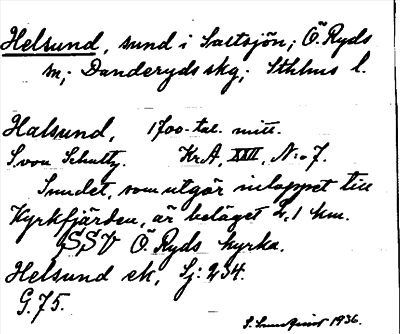 Helsund, sund i Saltsjön; Ö. Ryds
sn; Danderyds skg; Sthlms l.
Halsund, 1700-tal. mitt.
Svon Schultz. Kr.A, XXII, N:o 7.
Sundet, som utgör inloppet till
Kyrkfjärden, är beläget 2,1 km.
SSV Ö. Ryds kyrka.
Helsund ek, Sj: 234.
G. 75.
1936.